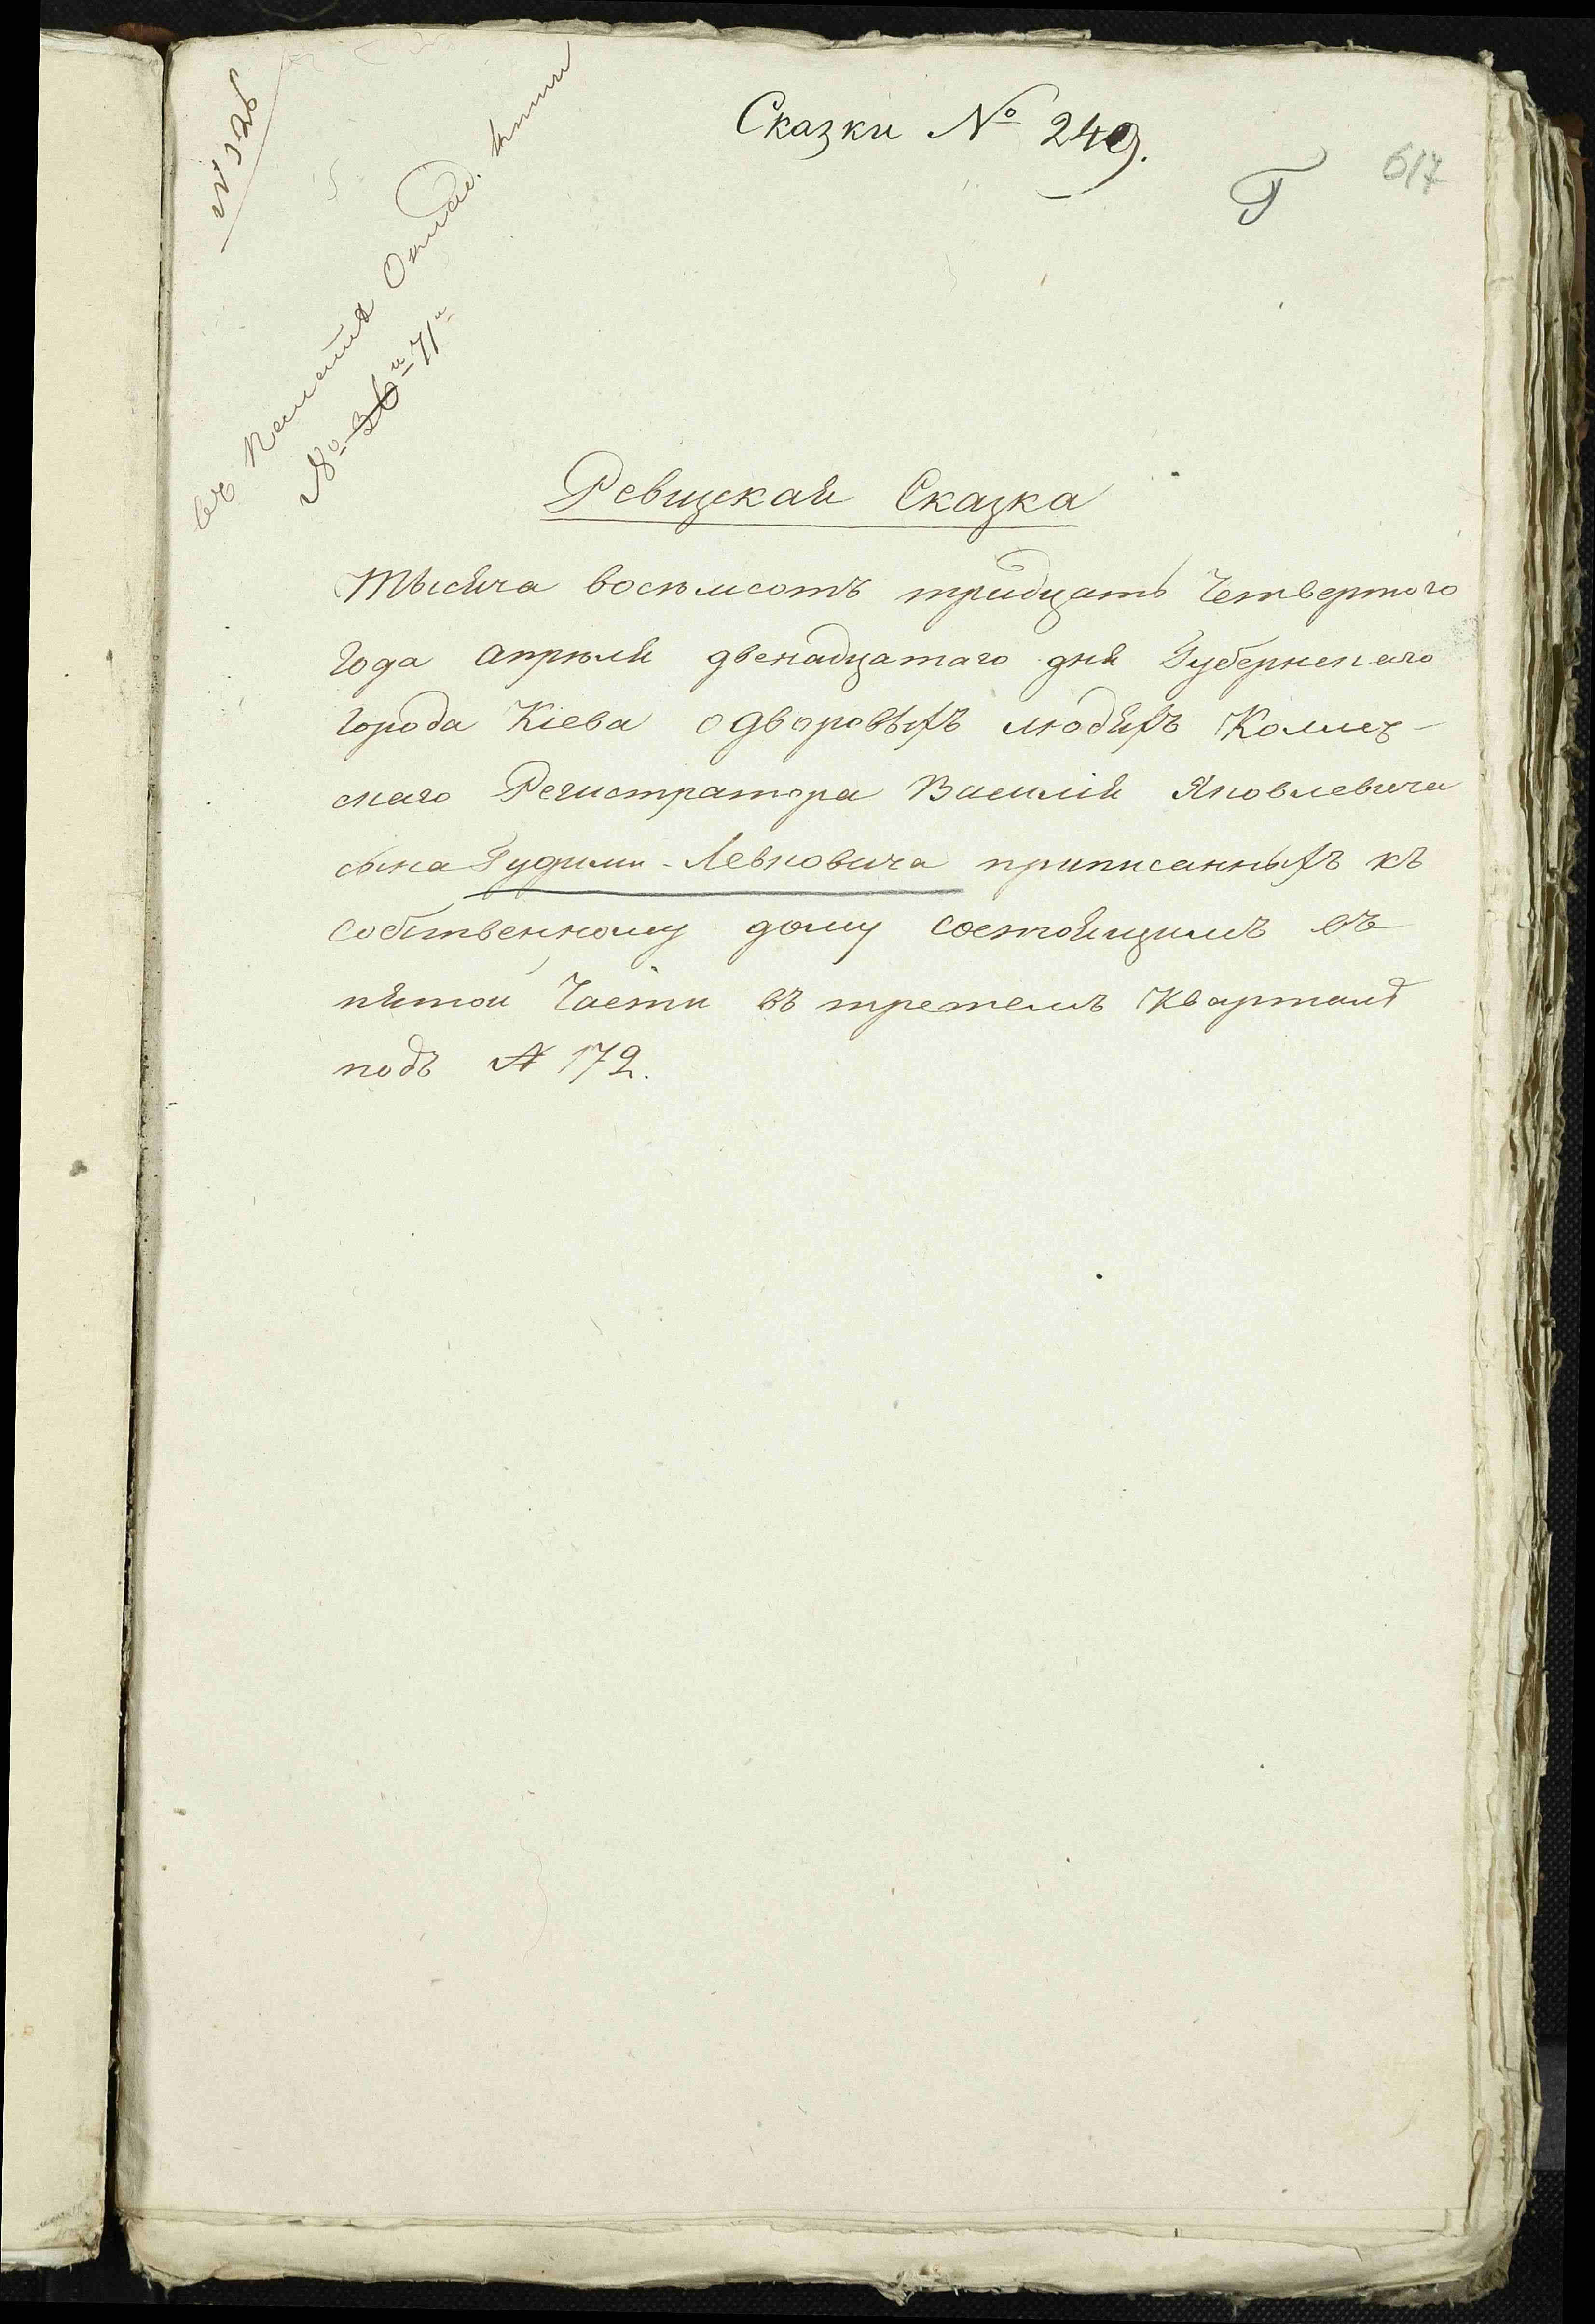 № 326
Сказки № 249.
Г
617
въ
№ 36й 71й
Ревизская Сказка
Тысяча восемьсотъ тридцать Четвертого
Года апреля двенадцатаго дня Губернскаго
Города Кіева о дворовыхъ людяхъ Коллеж-
скаго Регистратора Василія Яковлевича
сына Гудими-Левковича приписанныхъ къ
собственному дому состоящимъ въ
пятой Части въ третемъ Кварталѣ
подъ № 172.